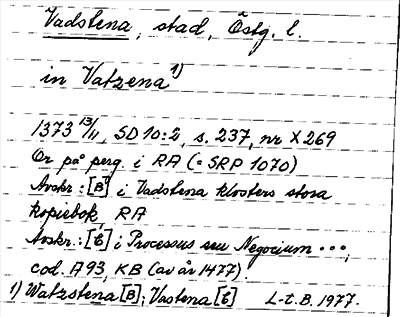 Vadstena, stad, Östg. l.
in Vatzena 1)
1373 13/11, SD 10:2, s. 237, nr X 269
Or på perg. i RA (= SRP 1070)
Avskr.: [B] i Vadstena klosters stora
kopiebok, RA
Avskr.: [E] i Processus seu Negocium ...,
cod. A 93, KB (av år 1477).
1) Watzstena [B]; Vastena [E] L-t. B. 1977.